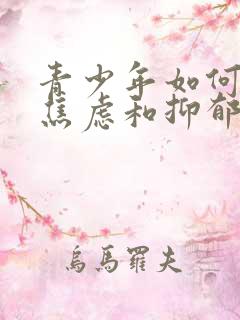 青少年如何
焦虑和抑郁
烏馬羅夫